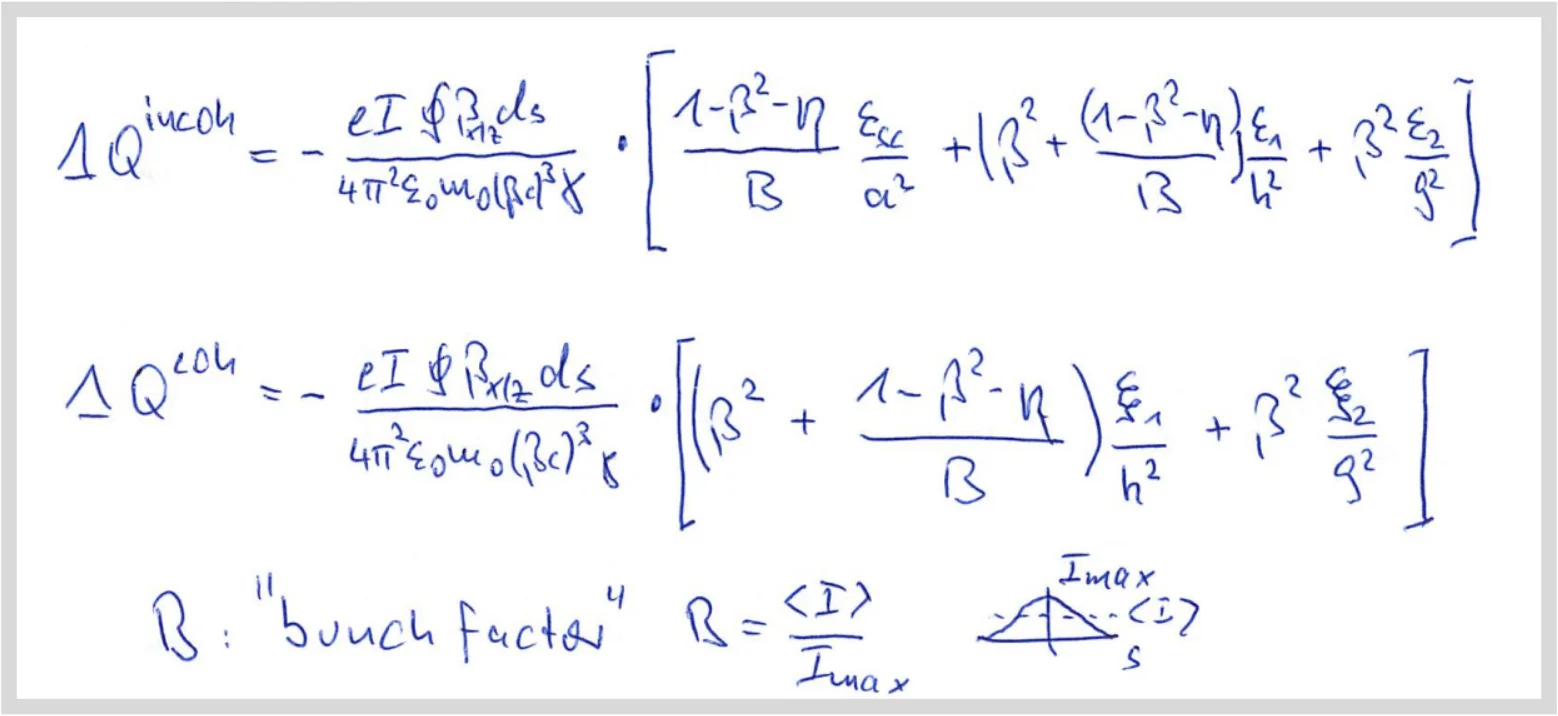 ΔQ^{incoh} = - \frac{eI ∮β_{x/z} ds}{4π²ε₀m₀(βc)³γ} · [ \frac{1-β²-η}{B} \frac{ε_{sc}}{a²} + (β² + \frac{(1-β²-η)}{B}) \frac{ε₁}{h²} + β² \frac{ε₂}{g²} ]
ΔQ^{coh} = - \frac{eI ∮β_{x/z} ds}{4π²ε₀m₀(βc)³γ} · [ (β² + \frac{1-β²-η}{B}) \frac{ξ₁}{h²} + β² \frac{ξ₂}{g²} ]
B: "bunch factor" B = \frac{<I>}{I_{max}} I_{max} <I> s